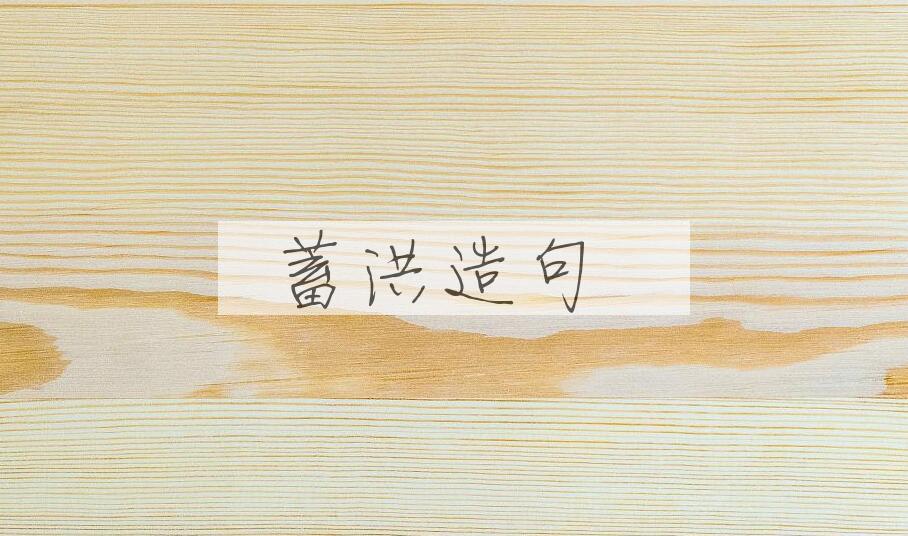 蓄洪造句